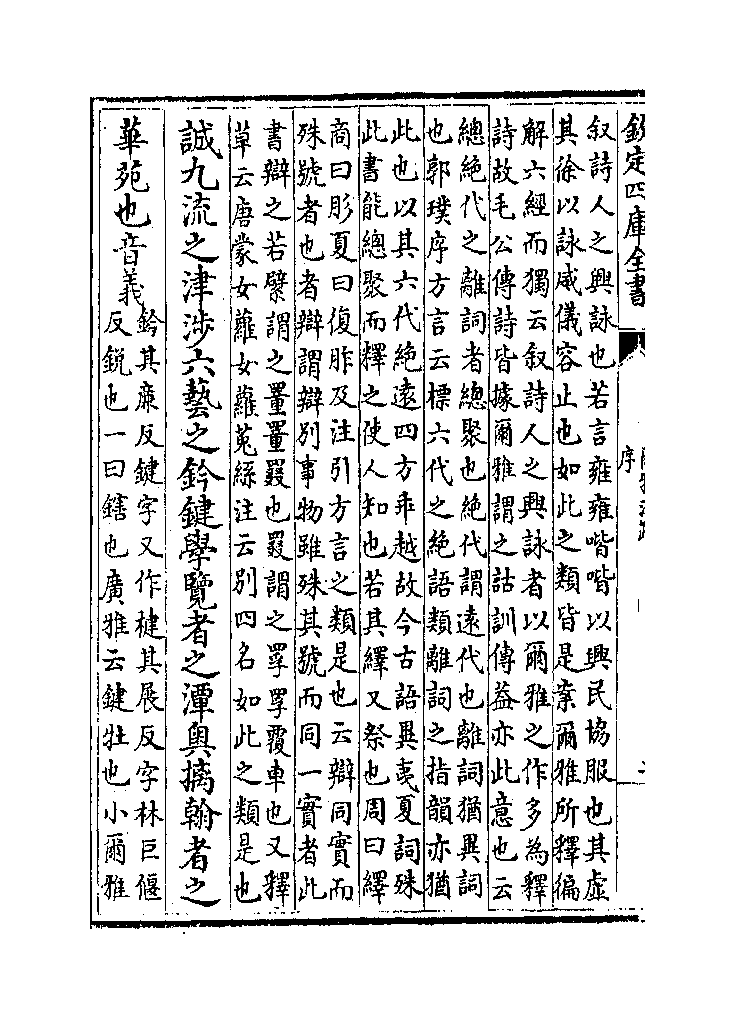 欽定四庫全書
序
叙詩人之興詠也若言雍雍喈喈以興民協服也其虛
其徐以詠威儀容止也如此之類皆是案爾雅所釋徧
解六經而獨云叙詩人之興詠者以爾雅之作多為釋
詩故毛公傳詩皆據爾雅謂之詁訓傳葢亦此意也云
總絶代之離詞者總聚也絶代謂遠代也離詞猶異詞
也郭璞序方言云標六代之絶語類離詞之指韻亦猶
此也以其六代絶遠四方乖越故今古語異夷夏詞殊
此書能總聚而釋之使人知也若其繹又祭也周曰繹
商曰肜夏曰復胙及注引方言之類是也云辯同實而
殊號者也者辯謂辯別事物雖殊其號而同一實者此
書辯之若繴謂之罿罿罬也罬謂之罦罦覆車也又釋
草云唐蒙女蘿女蘿菟絲注云別四名如此之類是也
誠九流之津涉六藝之鈐鍵學覽者之潭奥摛翰者之
華苑也音義
鈐其廉反鍵字又作楗其展反字林巨偃
反鋭也一曰鎋也廣雅云鍵牡也小爾雅